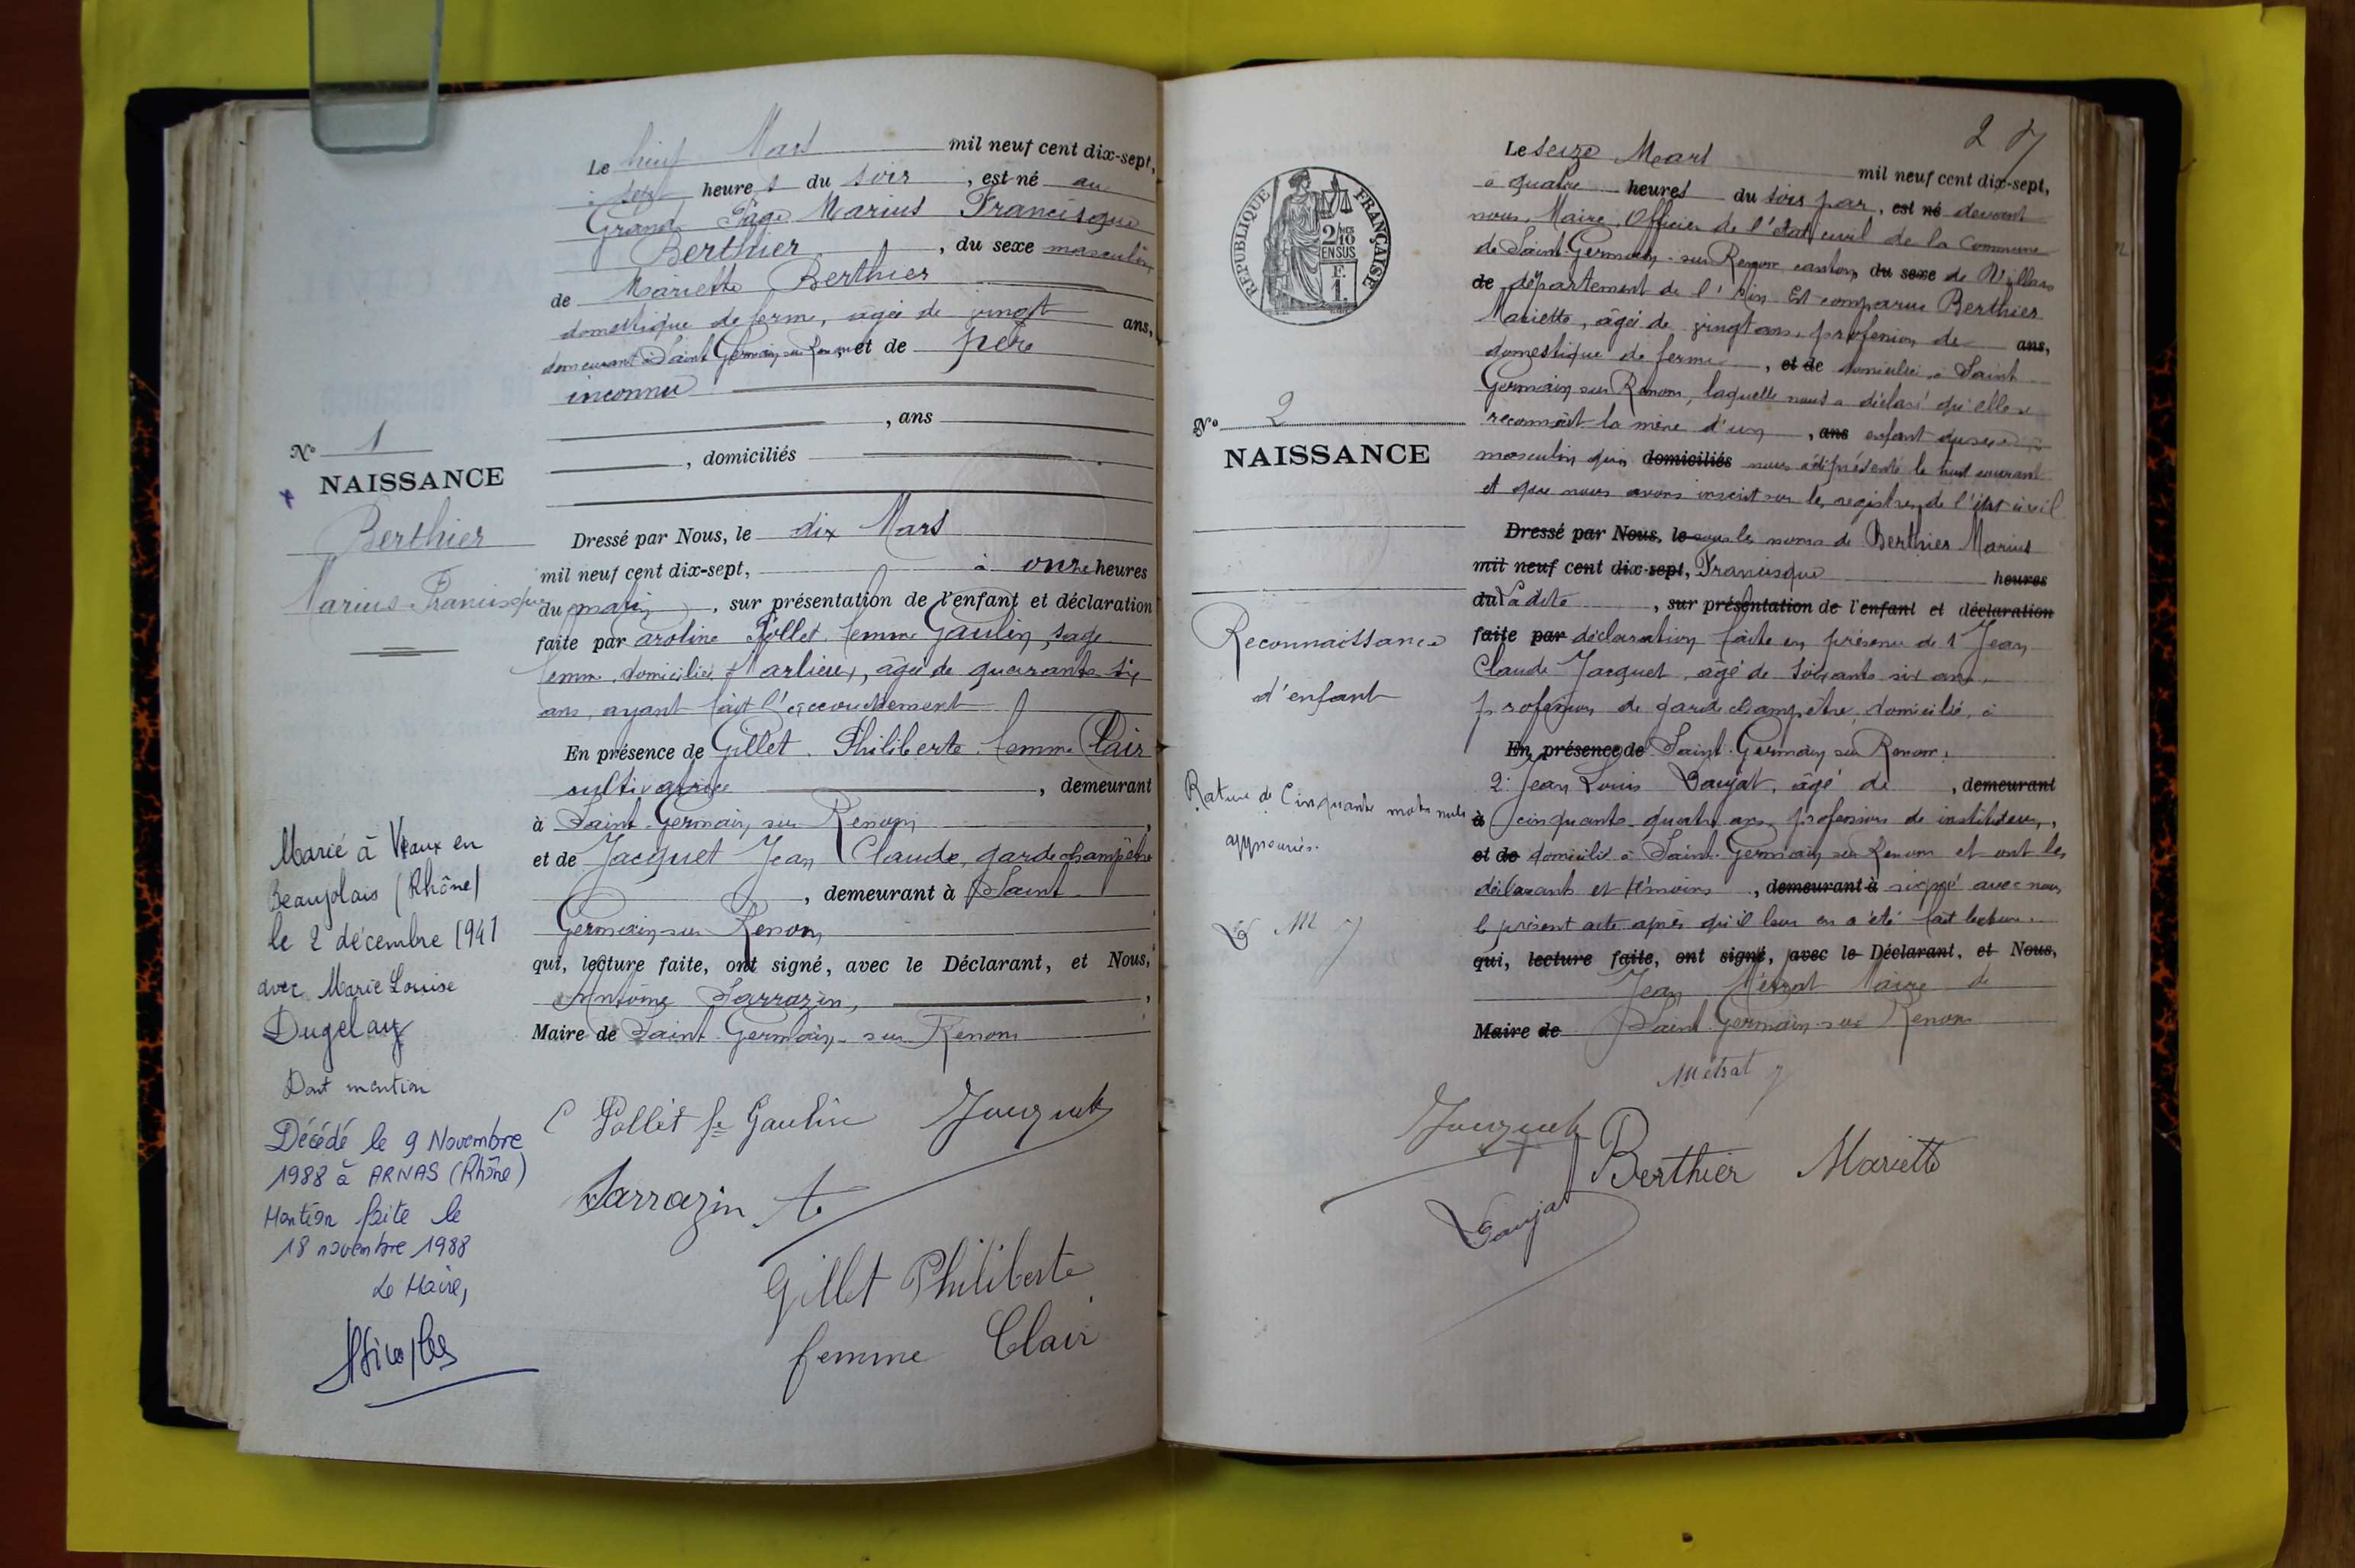 Le neuf Mars mil neuf cent dix-sept,
à sept heures du soir, est né au
Grand Page Marius Francisque
Berthier, du sexe masculin
de Mariette Berthier
domestique de ferme, âgée de vingt ans,
demeurant à Saint Germain sur Renom et de père
inconnu
, ans
, domiciliés
N° 1
NAISSANCE
Berthier
Marius Francisque
Dressé par Nous, le dix Mars
mil neuf cent dix-sept, à onze heures
du matin, sur présentation de l'enfant et déclaration
faite par Caroline Pollet femme Gaulin, sage
femme, domiciliée à Marlieux, âgée de quarante six
ans, ayant fait l'accouchement
En présence de Gillet Philiberte femme Clair
cultivatrice, demeurant
à Saint-Germain sur Renom,
et de Jacquet Jean Claude, garde champêtre
, demeurant à Saint
Germain sur Renom
qui, lecture faite, ont signé, avec le Déclarant, et Nous,
Antoine Sarrazin,
Maire de Saint-Germain-sur Renom
Marié à Vaux en
Beaujolais (Rhône)
le 2 décembre 1941
avec Marie Louise
Dugelay
Dont mention
Décédé le 9 Novembre
1988 à ARNAS (Rhône)
Mention faite le
18 novembre 1988
Le Maire,
C Pollet fe Gaulin Jacquet
Sarrazin A
Gillet Philiberte
femme Clair
27
REPUBLIQUE FRANÇAISE
2/10
EN SUS
F.
1.
Le seize Mars mil neuf cent dix-sept,
à quatre heures du soir par, est né devant
nous, Maire, Officier de l'état civil de la Commune
de Saint-Germain-sur Renom canton du sexe de Villars
de département de l'Ain Est comparue Berthier
Mariette, âgée de vingt ans, profession de ans,
domestique de ferme, et de domiciliée à Saint
Germain sur Renom, laquelle nous a déclaré qu'elle se
reconnait la mère d'un, ans enfant du sexe
masculin qui domiciliés nous a été présenté le courant
et que nous avons inscrit sur les registres de l'état civil
Dressé par Nous, le sous les noms de Berthier Marius
mil neuf cent dix-sept, Francisque heures
du Ladite, sur présentation de l'enfant et déclaration
faite par déclaration faite en présence de 1 Jean
Claude Jacquet, âgé de soixante six ans,
profession de garde champêtre, domicilié, à
En présence de Saint-Germain sur Renom,
2° Jean Louis Daujat, âgé de, demeurant
à cinquante quatre ans, profession de instituteur,
et de domicilié à Saint-Germain sur Renom et ont les
déclarants et témoins, demeurant à signé avec nous
le présent acte après qu'il leur en a été fait lecture.
qui, lecture faite, ont signé, avec le Déclarant, et Nous,
Jean Métrat Maire de
Maire de Saint-Germain-sur Renom
N° 2
NAISSANCE
Reconnaissance
d'enfant
Rature de Cinquante mots nuls
approuvés.
D M J
Métrat
Jacquet
Berthier Mariette
Daujat